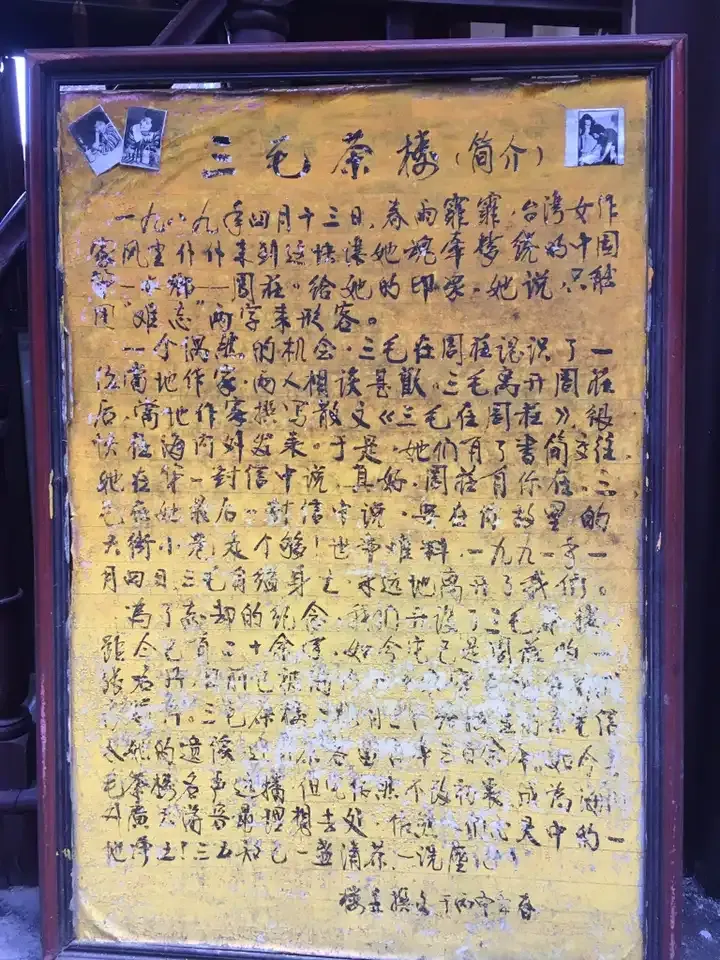 三毛茶楼（简介）
一九八九年四月十三日，春雨霏霏，台湾女作
家风尘仆仆来到这块让她魂牵梦绕的中国
第一水乡——周莊。给她的印象。她说，只能
用“难忘”两字来形容。
一个偶然的机会，三毛在周莊認识了一
位當地作家，兩人相谈甚歡。三毛离开周莊
后，當地作家撰写散文《三毛在周莊》，很
快在海内外发表。于是，她们有了書简交往
她在第一封信中说，真好，周莊有你在。三
毛在她最后一封信中说，要在你故里的
大街小巷走个够！世事难料，一九九一年一
月四日，三毛自缢身亡，永远地离开了我们。
為了忘却的纪念，我们开设了三毛茶楼
距今已有二十余年，如今它已是周莊的一
张名片。目前已
三毛茶楼
的遗
毛茶楼名声远播，但它依然不改初衷，成為海
外广大海音最理想去处，依然
心灵中的一
地净土！三五知己一盏清茶，一洗
楼主撰文于丙申年春